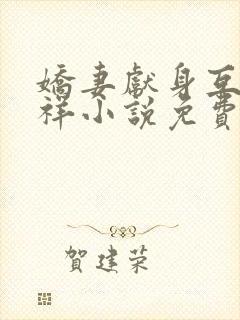 嬌妻獻身互
祥小說免費
賀建荣